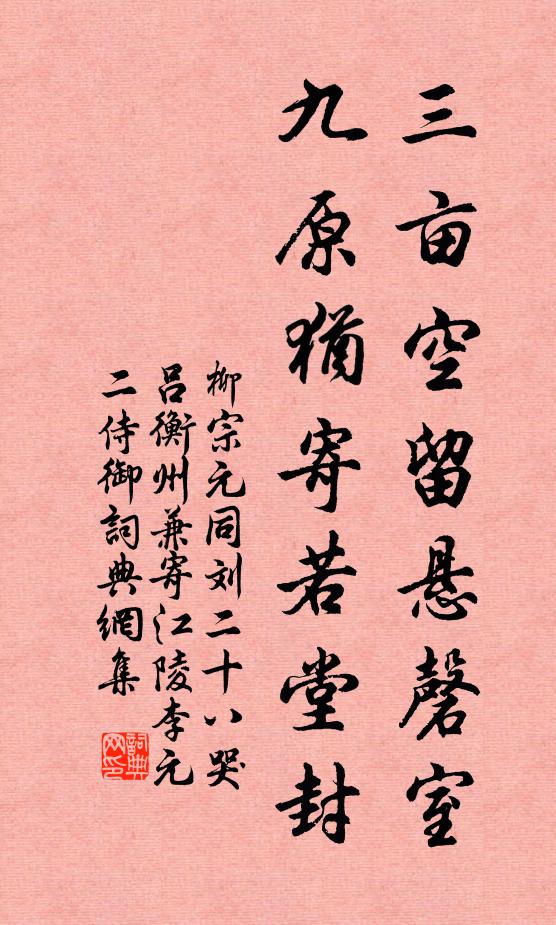 三亩空留悬磬室
九原犹寄若堂封
柳宗元同刘二十八哭
吕衡州兼寄江陵李元
二侍御詞典網集
詞典
网印